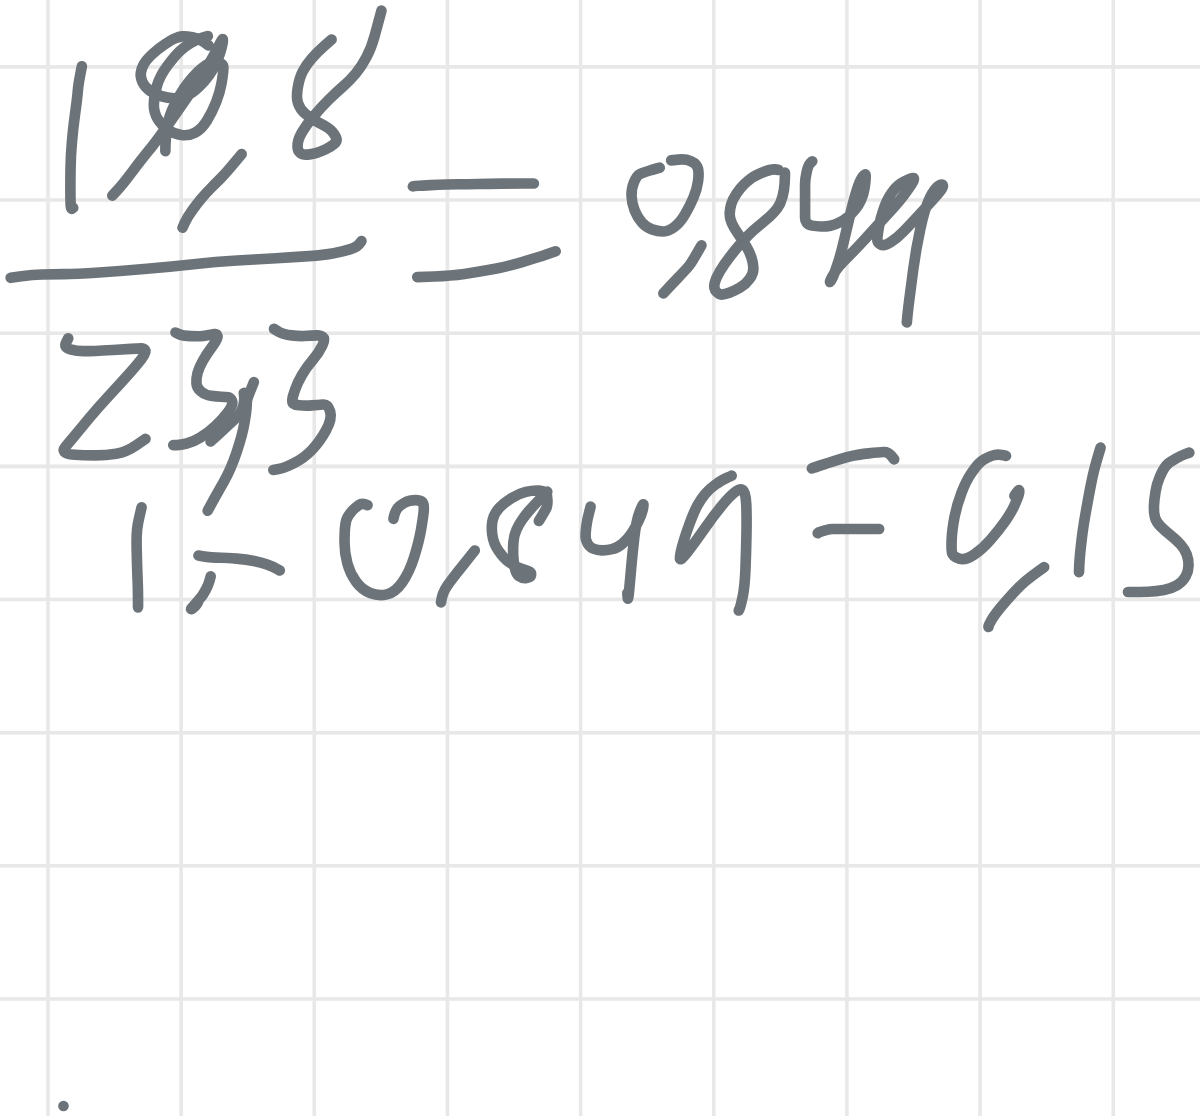 19,8
23,3
= 0,849
1,- 0,849 = 0,15